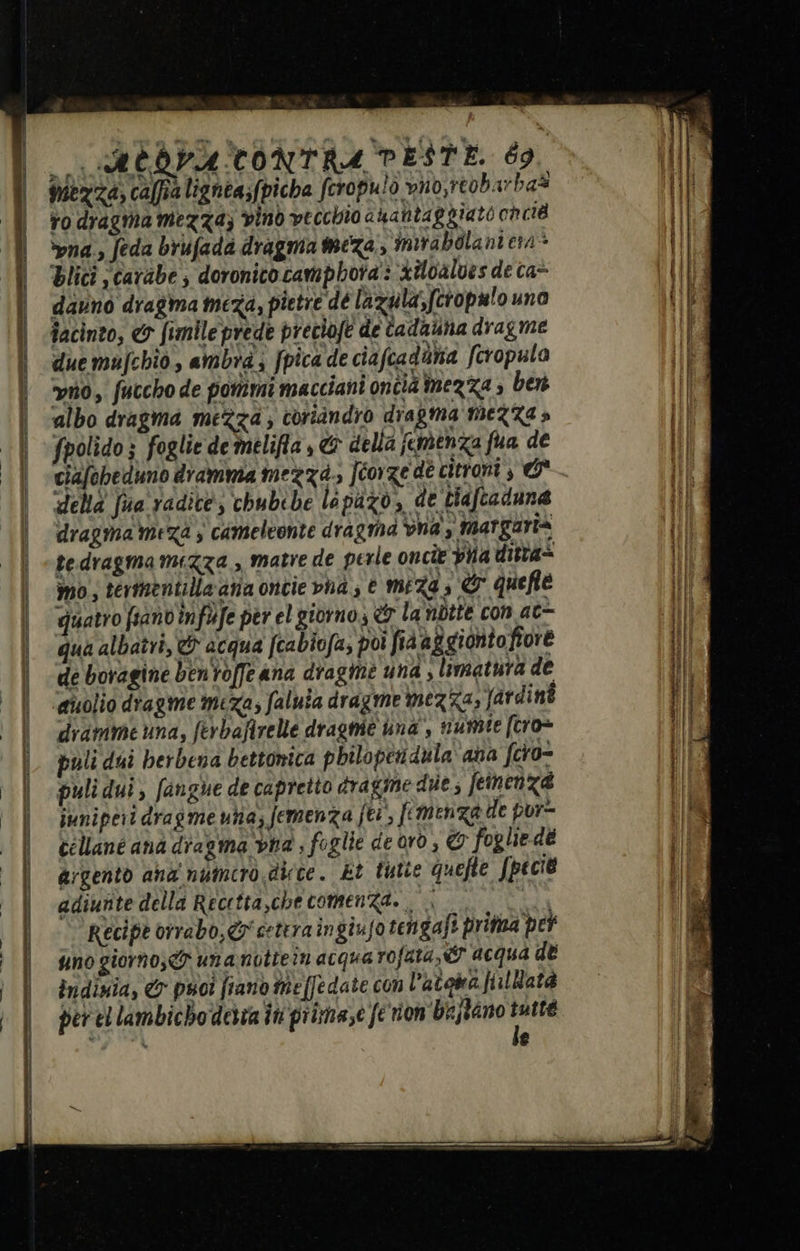 ACQVA CONTRA PESTE. 69
mezza, cassia lignea, spicha scropulo vno, reobarba-
ro dragma mezza; vino vecchio auantaggiato oncia
vna, seda brusada dragma meza, mirabolani em-
blici, carabe, doronico camphora: xiloaloes de ca-
dauno dragma meza, pietre de lazula, scropulo uno
iacinto, & simile prede preciose de cadauna dragme
due muschio, ambra, spica de ciascaduna scropulo
vno, succho de pommi macciani oncia mezza, ben
albo dragma mezza, coriandro dragma mezza,
spolido; foglie de melissa, & della semenza sua de
ciascheduno dramma mezza, scorze de citroni, &
della sua radice, chubebe lapazo, de ciascaduna
dragma meza, cameleonte dragma vna, margari-
te dragma mezza, matre de perle oncie vna ditta-
mo, termentilla ana oncie vna, e meza, & queste
quatro siano infuse per el giorno, & la notte con ac-
qua albatri, & acqua scabiosa, poi sia aggionto fiore
de boragine ben rosse ana dragme una, limatura de
auolio dragme meza, saluia dragme mezza, sardini
dramme una, serbastrelle dragme una, numie scro-
puli dui berbena bettonica philopendula ana scro-
puli dui, sangue de capretto dragme due, semenza
iuniperi dragme una, semenza sei, semenza de por-
cellane ana dragma vna, foglie de oro, & foglie de
argento ana numero diece. Et tutte queste specie
adiunte della Recetta, che comenza.
Recipe orrabo, & cetera ingiuso tengasi prima per
uno giorno, & una notte in acqua rosata, & acqua de
indiuia, & puoi siano messedate con l'acqua stillata
per el lambicho detta in prima, e se non bastano tutte
le